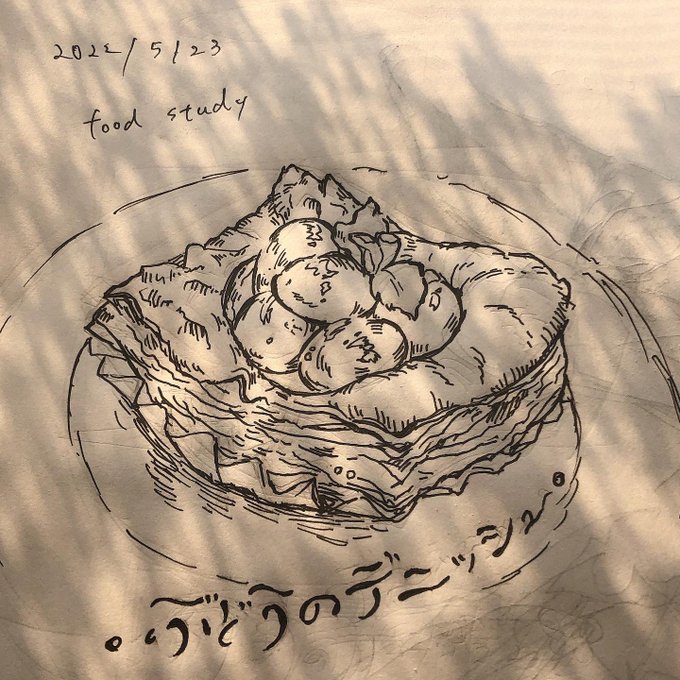 2022/5/23
food study
ぶどうのデニッシュ